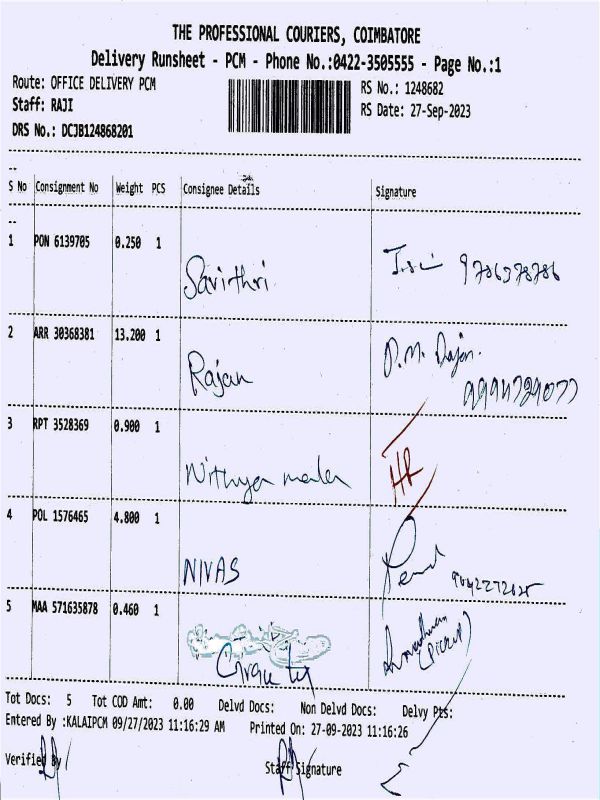 THE PROFESSIONAL COURIERS, COIMBATORE
Delivery Runsheet - PCM - Phone No.:0422-3505555 - Page No.:1
Route: OFFICE DELIVERY PCM
RS No.: 1248682
Staff: RAJI
RS Date: 27-Sep-2023
DRS No.: DCJB124868201
S No Consignment No Weight PCS Consignee Details Signature
1 PON 6139705 0.250 1
Savithri
2 ARR 30368381 13.200 1
Rajan
3 RPT 3528369 0.900 1
Nithya mala
4 POL 1576465 4.800 1
NIVAS
5 MAA 571635878 0.460 1
(PICKUP)
Tot Docs: 5 Tot COD Amt: 0.00 Delvd Docs: Non Delvd Docs: Delvy Pts:
Entered By :KALAIPCM 09/27/2023 11:16:29 AM Printed On: 27-09-2023 11:16:26
Verified By Staff Signature